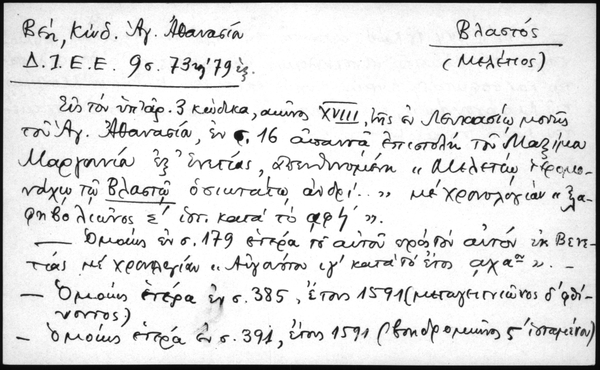 Βέη, Κώδ. Ἁγ. Ἀθανασία
Βλαστός
Δ.Ι.Ε.Ε. 9 σ. 73 79 ἑξ.
(Μελέτιος)
Εἰς τὸν ὑπ' ἀρ. 3 κώδικα, αἰῶνος XVIII, τῆς ἐν μονῆς
τοῦ Ἁγ. Ἀθανασία, ἐν σ. 16 ἀπαντᾷ ἐπιστολὴ τοῦ Μαξίμου
Μαργουνία ἐξ Ἐνετίας, ἀπευθυνομένη « Μελετίῳ ἱερομο-
νάχῳ τῷ Βλαστῷ ὁσιωτάτῳ ἀνδρί... » μὲ χρονολογίαν « Ἐλα-
φηβολιῶνος κατὰ τὸ ».
— Ὁμοίως ἐν σ. 179 ἑτέρα τοῦ αὐτοῦ πρὸς τὸν αὐτὸν ἐκ Βενε-
τίας μὲ χρονολογίαν « Αὐγούστου ιγ' κατὰ τὸ ἔτος ». —
— Ὁμοίως ἑτέρα ἐν σ. 385, ἔτους 1591 (μεταγειτνιῶνος δ' φθί-
νοντος)
— Ὁμοίως ἑτέρα ἐν σ. 391, ἔτους 1591 (βοηδρομιῶνος ἱσταμένου)